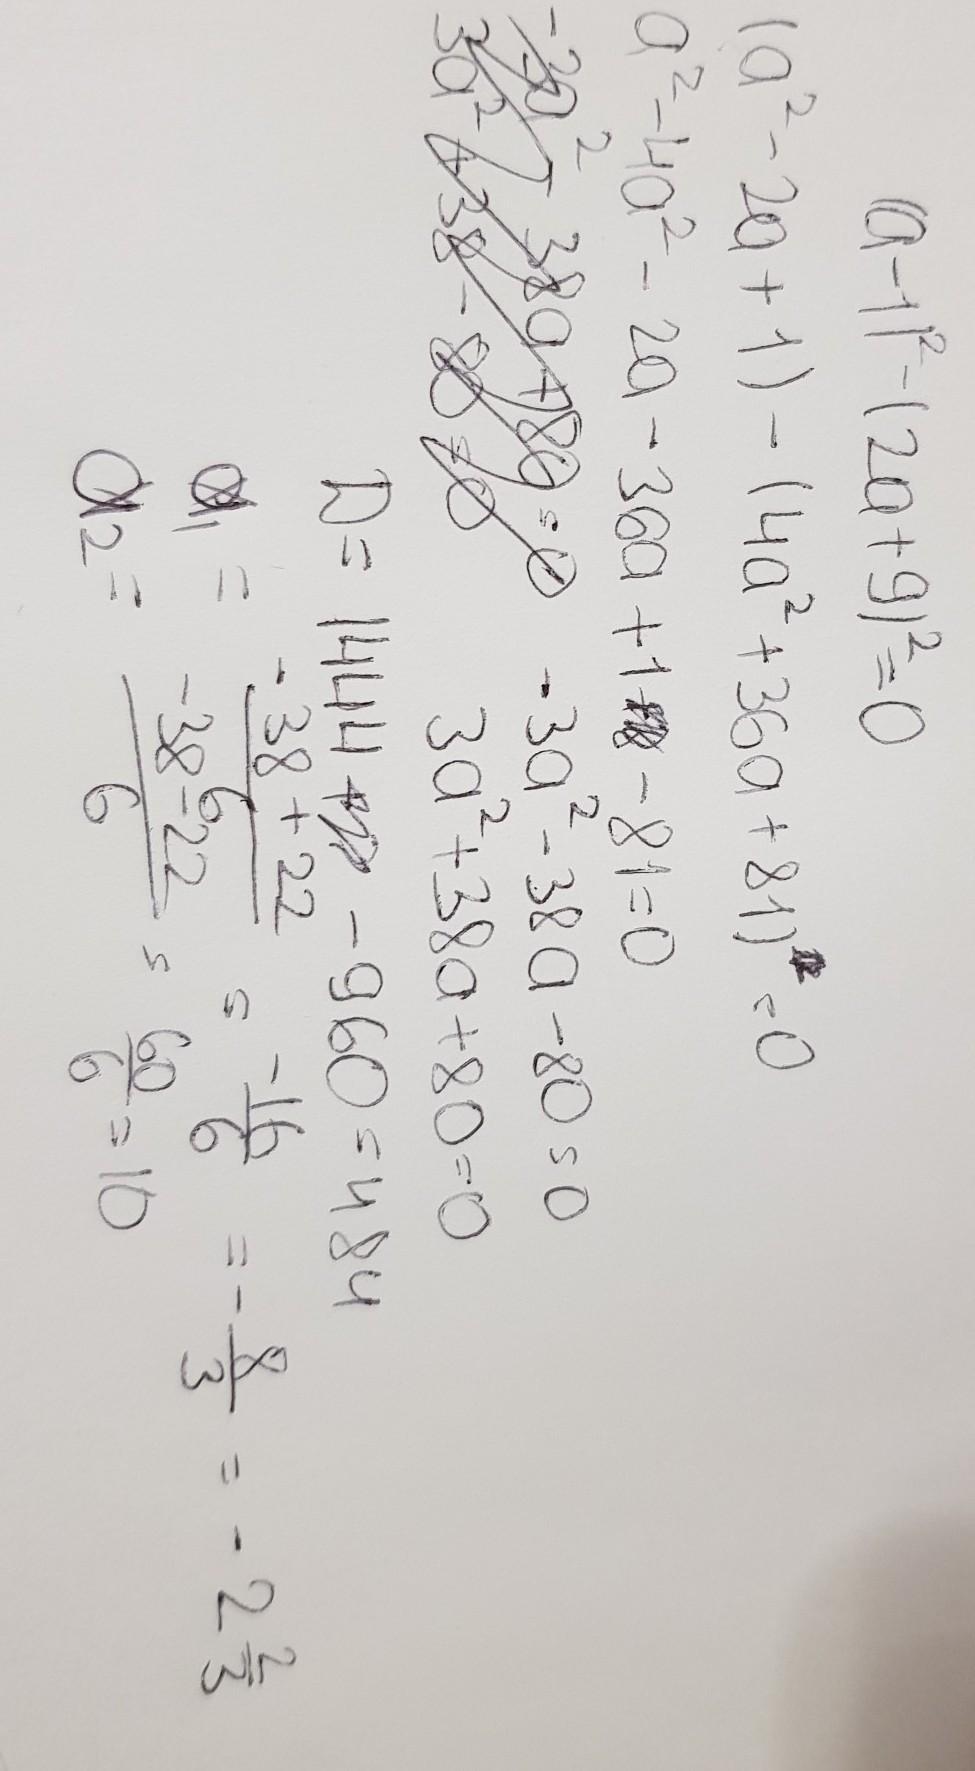 (a-1)²-(2a+9)²=0
(a²-2a+1)-(4a²+36a+81)=0
a²-4a²-2a-36a+1-81=0
-3a²-38a-80=0
3a²+38a+80=0
D=1444-960=484
a₁=(-38+22)/6=-16/6=-8/3=-2 2/3
a₂=(-38-22)/6=60/6=10